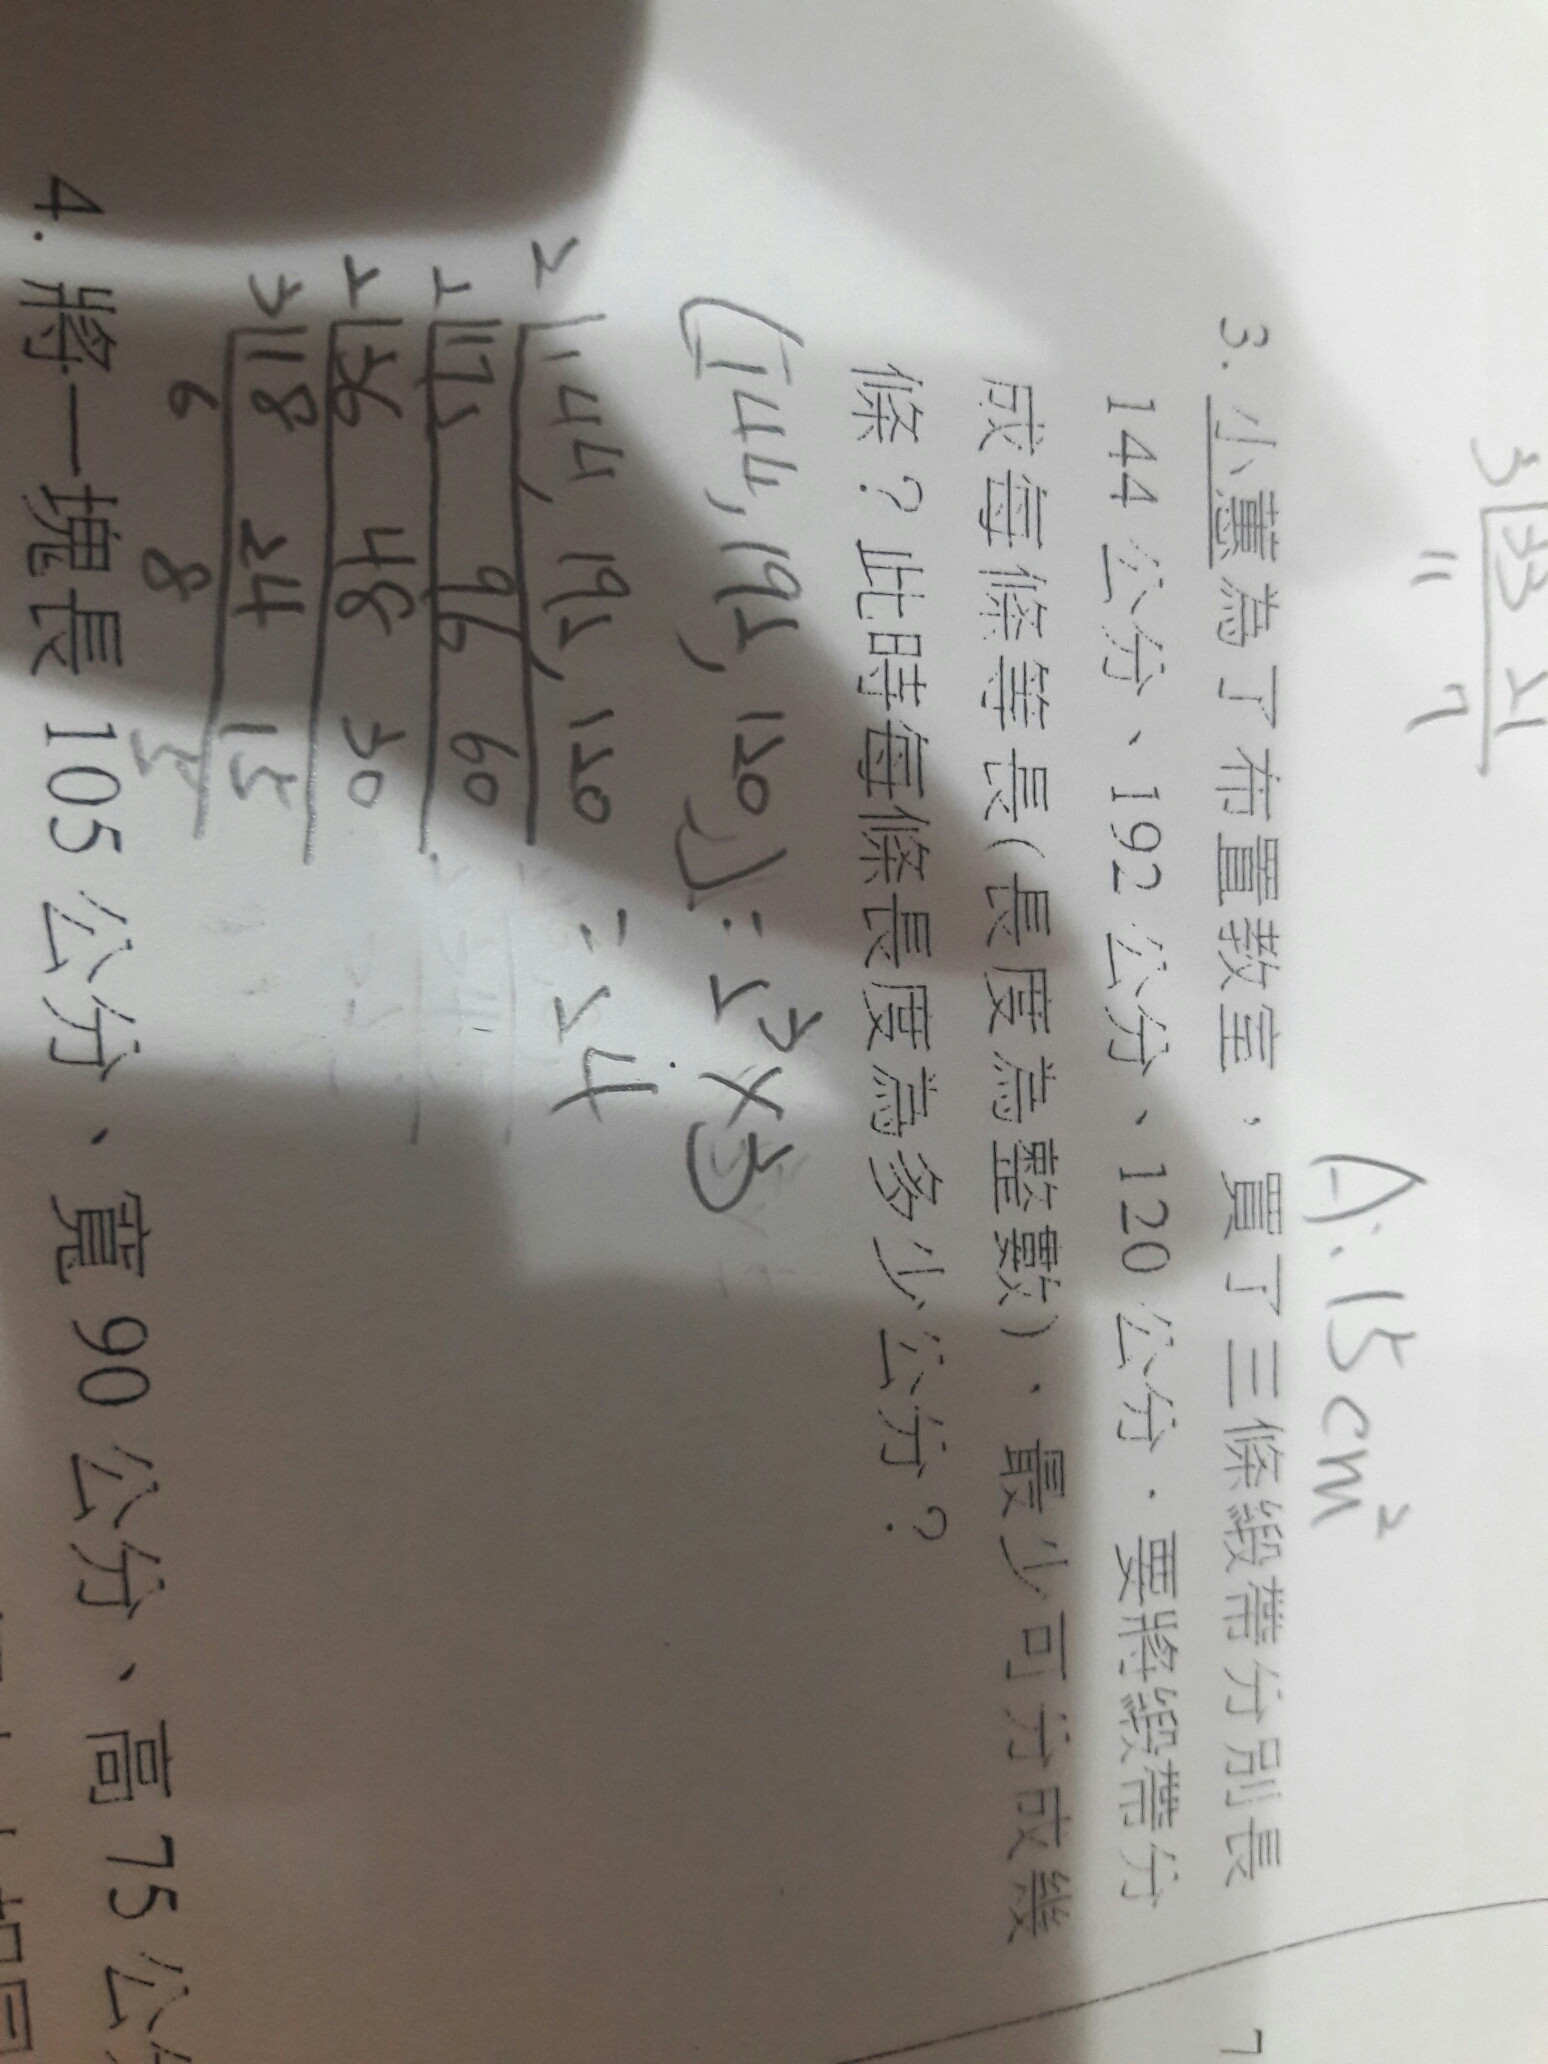 3 33 21
11 7
A:15cm²
3. 小蕙為了布置教室，買了三條緞帶分別長
144 公分、192 公分、120 公分．要將緞帶分
成每條等長(長度為整數)．最少可分成幾
條？此時每條長度為多少公分？
7
(144,192,120)=2³×3
=24
2 144,192,120
2 72 96 60
2 36 48 30
3 18 24 15
6 8 5
4. 將一塊長 105 公分、寬 90 公分、高 75 公分